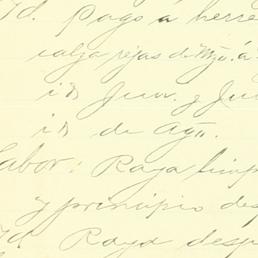 Id. Pago á herre
calza rejas de Mzo. á
id Jun. y Ju
id de Ago.
Labor: Raya limp
y principio des
Id. Raya desp